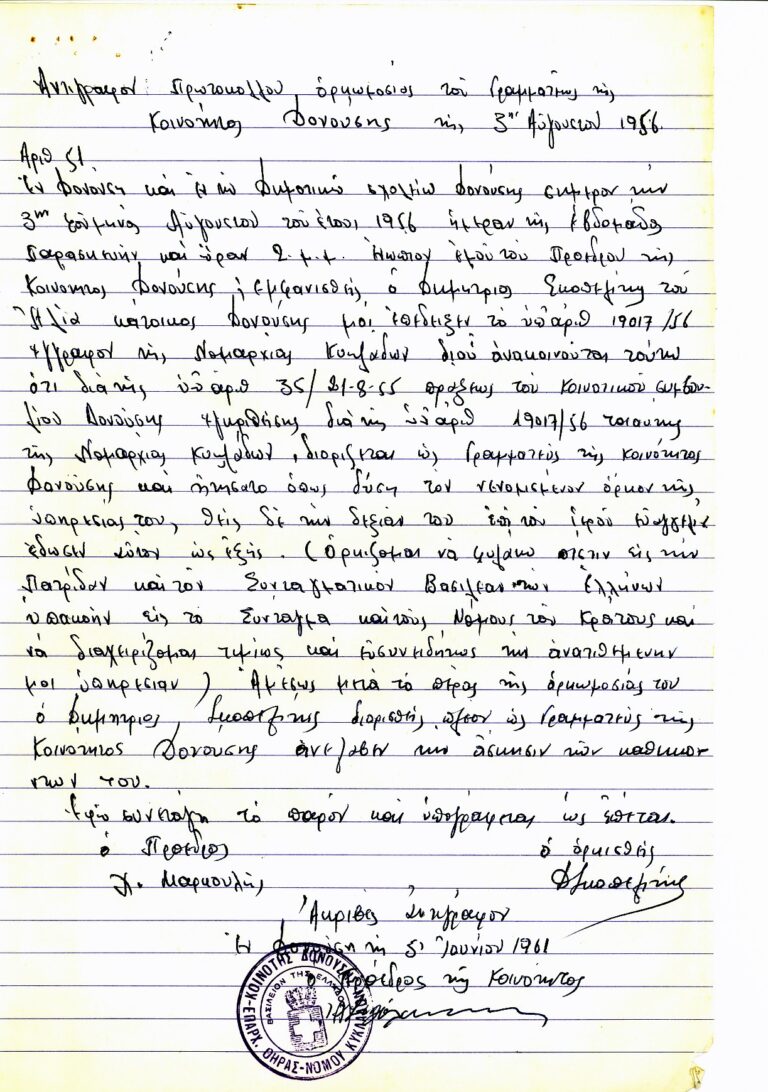 Αντίγραφον Πρωτοκόλλου ὁρκωμοσίας τοῦ Γραμματέως τῆς
Κοινότητος Δονούσης τῆς 3ης Αὐγούστου 1956.
Αριθ 51
Ἐν Δονούσῃ καὶ ἐν τῷ Δημοτικῷ σχολείῳ Δονούσης σήμερον τὴν
3ην τοῦ μηνὸς Αὐγούστου τοῦ ἔτους 1956 ἡμέραν τῆς ἑβδομάδος
Παρασκευὴν καὶ ὥραν 2 μ.μ. ἐνώπιον ἐμοῦ τοῦ Προέδρου τῆς
Κοινότητος Δονούσης ἐμφανισθεὶς ὁ Δημήτριος Σκοπελίτης τοῦ
Ἠλία κάτοικος Δονούσης μοὶ ἐπέδειξεν τὸ ὑπ' ἀριθ 19017/56
ἔγγραφον τῆς Νομαρχίας Κυκλάδων δι' οὗ ἀνακοινοῦται τούτῳ
ὅτι διὰ τῆς ὑπ' ἀριθ 35/21-8-55 πράξεως τοῦ Κοινοτικοῦ συμβου-
λίου Δονούσης ἐγκριθείσης διὰ τῆς ὑπ' ἀριθ 19017/56 τοιαύτης
τῆς Νομαρχίας Κυκλάδων, διορίζεται ὡς Γραμματεὺς τῆς κοινότητος
Δονούσης καὶ ᾐτήσατο ὅπως δώσῃ τὸν νενομισμένον ὅρκον τῆς
ὑπηρεσίας του, θεὶς δὲ τὴν δεξιάν του ἐπὶ τοῦ ἱεροῦ Εὐαγγελίου
ἔδωσεν αὐτὸν ὡς ἑξῆς. (Ὁρκίζομαι νὰ φυλάττω πίστιν εἰς τὴν
Πατρίδαν καὶ τὸν Συνταγματικὸν Βασιλέαν τῶν Ἑλλήνων
ὑπακοὴν εἰς τὸ Σύνταγμα καὶ τοὺς Νόμους τοῦ Κράτους καὶ
νὰ διαχειρίζομαι τιμίως καὶ εὐσυνειδήτως τὴν ἀνατιθεμένην
μοι ὑπηρεσίαν) Ἀμέσως μετὰ τὸ πέρας τῆς ὁρκωμοσίας του
ὁ Δημήτριος Σκοπελίτης διορισθεὶς πλέον ὡς Γραμματεὺς τῆς
Κοινότητος Δονούσης ἀνέλαβεν τὴν ἄσκησιν τῶν καθηκόν-
των του.
Ἐφ' ᾧ συνετάγη τὸ παρὸν καὶ ὑπογράφεται ὡς ἕπεται.
ὁ Πρόεδρος ὁ ὁρκισθεὶς
Μαρκουλῆς Δ Σκοπελίτης
Ἀκριβὲς Ἀντίγραφον
Ἐν Δονούσῃ τῇ 5 Ἰουνίου 1961
ὁ Πρόεδρος τῆς Κοινότητος
ΚΟΙΝΟΤΗΣ ΔΟΝΟΥΣΗΣ
ΕΠΑΡΧ. ΘΗΡΑΣ-ΝΟΜΟΥ ΚΥΚΛΑΔΩΝ
ΒΑΣΙΛΕΙΟΝ ΤΗΣ ΕΛΛΑΔΟΣ